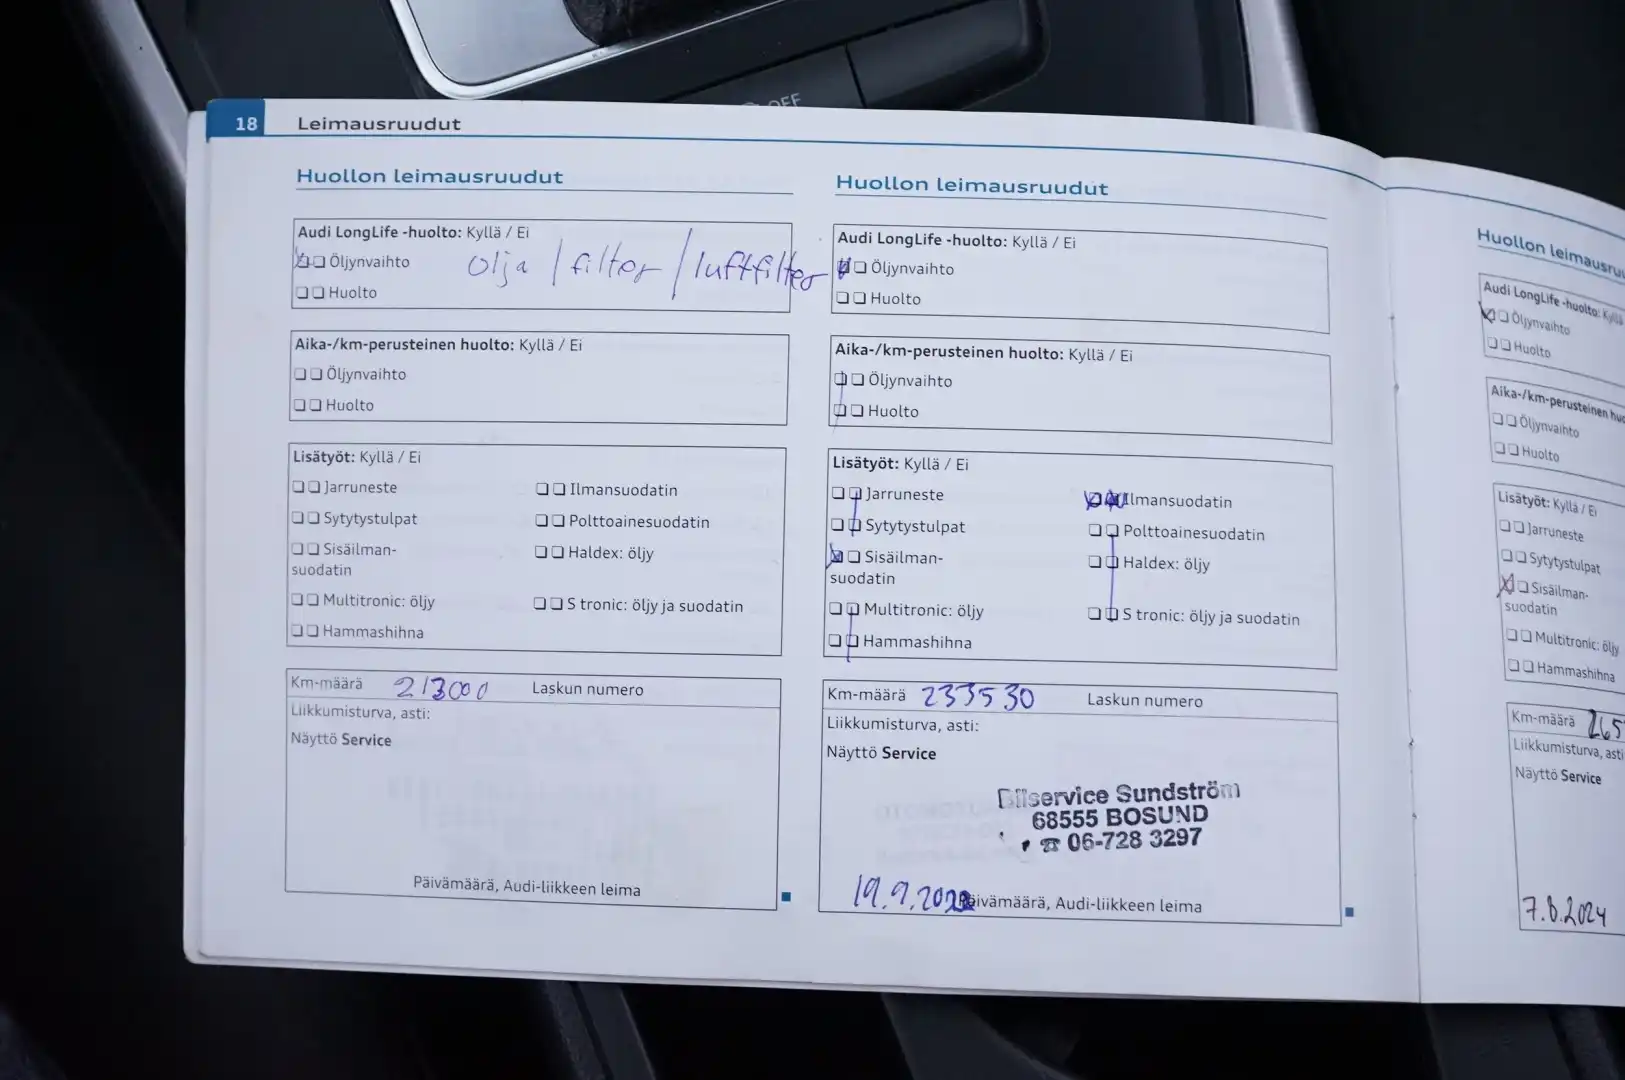 OFF
18 Leimausruudut
Huollon leimausruudut
Audi LongLife -huolto: Kyllä / Ei
Öljynvaihto olja / filter / luftfilter
Huolto
Aika-/km-perusteinen huolto: Kyllä / Ei
Öljynvaihto
Huolto
Lisätyöt: Kyllä / Ei
Jarruneste Ilmansuodatin
Sytytystulpat Polttoainesuodatin
Sisäilman- Haldex: öljy
suodatin
Multitronic: öljy S tronic: öljy ja suodatin
Hammashihna
Km-määrä 213000 Laskun numero
Liikkumisturva, asti:
Näyttö Service
Päivämäärä, Audi-liikkeen leima
Huollon leimausruudut
Audi LongLife -huolto: Kyllä / Ei
Öljynvaihto
Huolto
Aika-/km-perusteinen huolto: Kyllä / Ei
Öljynvaihto
Huolto
Lisätyöt: Kyllä / Ei
Jarruneste Ilmansuodatin
Sytytystulpat Polttoainesuodatin
Sisäilman- Haldex: öljy
suodatin
Multitronic: öljy S tronic: öljy ja suodatin
Hammashihna
Km-määrä 233530 Laskun numero
Liikkumisturva, asti:
Näyttö Service
Bilservice Sundström
68555 BOSUND
☎ 06-728 3297
19.9.2022 Päivämäärä, Audi-liikkeen leima
Huollon leimausruu
Audi LongLife -huolto: Kyllä
Öljynvaihto
Huolto
Aika-/km-perusteinen huo
Öljynvaihto
Huolto
Lisätyöt: Kyllä / Ei
Jarruneste
Sytytystulpat
Sisäilman-
suodatin
Multitronic: öljy
Hammashihna
Km-määrä 265
Liikkumisturva, asti
Näyttö Service
7.8.2024